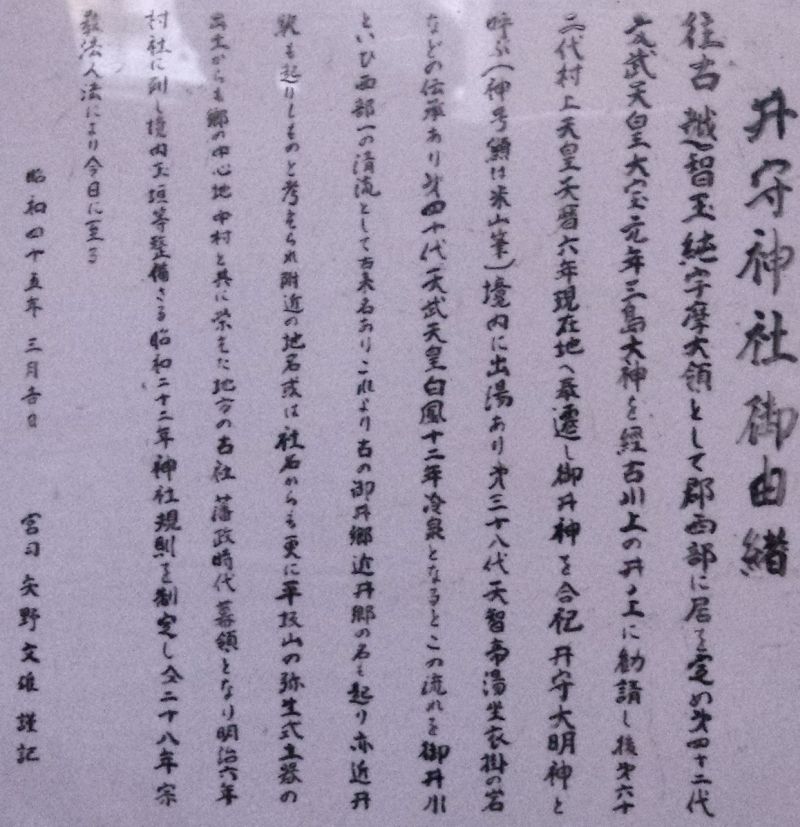 井守神社御由緒
往古越智玉純宇摩大領として郡西部に居を定め才四十二代
文武天皇大宝元年三島大神を経古川上の井ノ上に勧請し後才六十
二代村上天皇天暦六年現在地へ奉遷し御井神を合祀井守大明神と
呼ぶ(神号額は米山筆)境内に出湯あり才三十八代天智帝湯坐衣掛の岩
などの伝承あり才四十代天武天皇白鳳十二年冷泉となるとこの流れを御井川
といひ西部一の清流として古来名ありこれより古の御井郷近井郷の名も起り亦近井
駅も起りしものと考えられ附近の地名或は社名からも更に平坂山の弥生式土器の
出土からも郷の中心地中村と共に栄えた地方の古社藩政時代幕領となり明治六年
村社に列し境内玉垣等整備さる昭和二十二年神社規則を制定し仝二十八年宗
教法人法により今日に至る
昭和四十五年三月吉日
宮司矢野文雄謹記